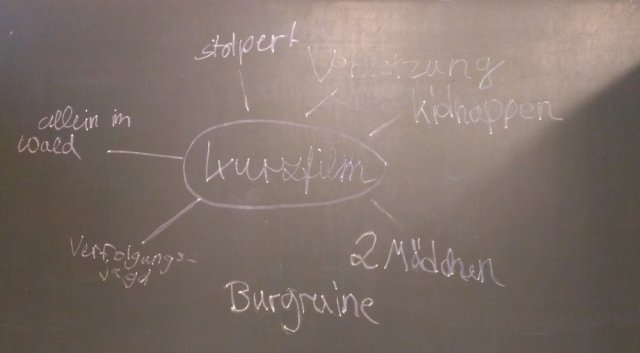 stolpert
Verletzung
kidnappen
allein im
Wald
Kurzfilm
Verfolgungs-
jagd
2 Mädchen
Burgruine